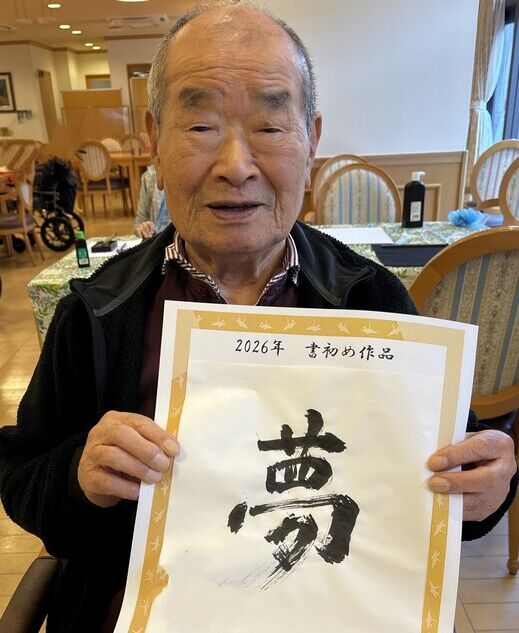 2026年 書初め作品
夢